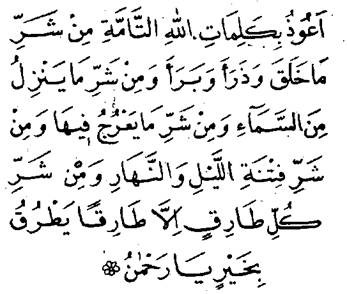 اَعُوْذُ بِكَلِمَاتِ اللهِ التَّامَّةِ مِنْ شَرِّ
مَا خَلَقَ وَذَرَأَ وَبَرَأَ وَمِنْ شَرِّ مَا يَنْزِلُ
مِنَ السَّمَآءِ وَمِنْ شَرِّ مَا يَعْرُجُ فِيهَا وَمِنْ
شَرِّ فِتْنَةِ اللَّيْلِ وَالنَّهَارِ وَمِنْ شَرِّ
كُلِّ طَارِقٍ اِلَّا طَارِقًا يَطْرُقُ
بِخَيْرٍ يَا رَحْمٰنُ